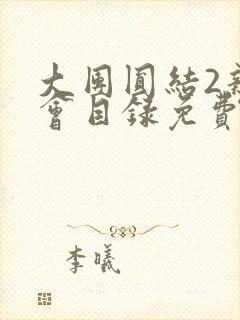 大团圆结2新
会目录免费
李曦